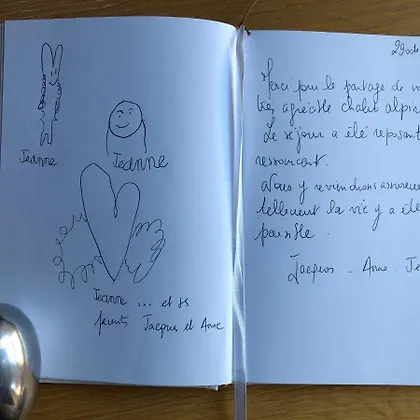 Jeanne
Jeanne
Jeanne ... et ss
parents Jacques et Anne
29 oct
Merci pour le partage de vo
très agréable chalet alpin
Le séjour a été reposant
ressourçant.
Nous y reviendrons assuréme
tellement la vie y a été
paisible.
Jacques . Anne . Je